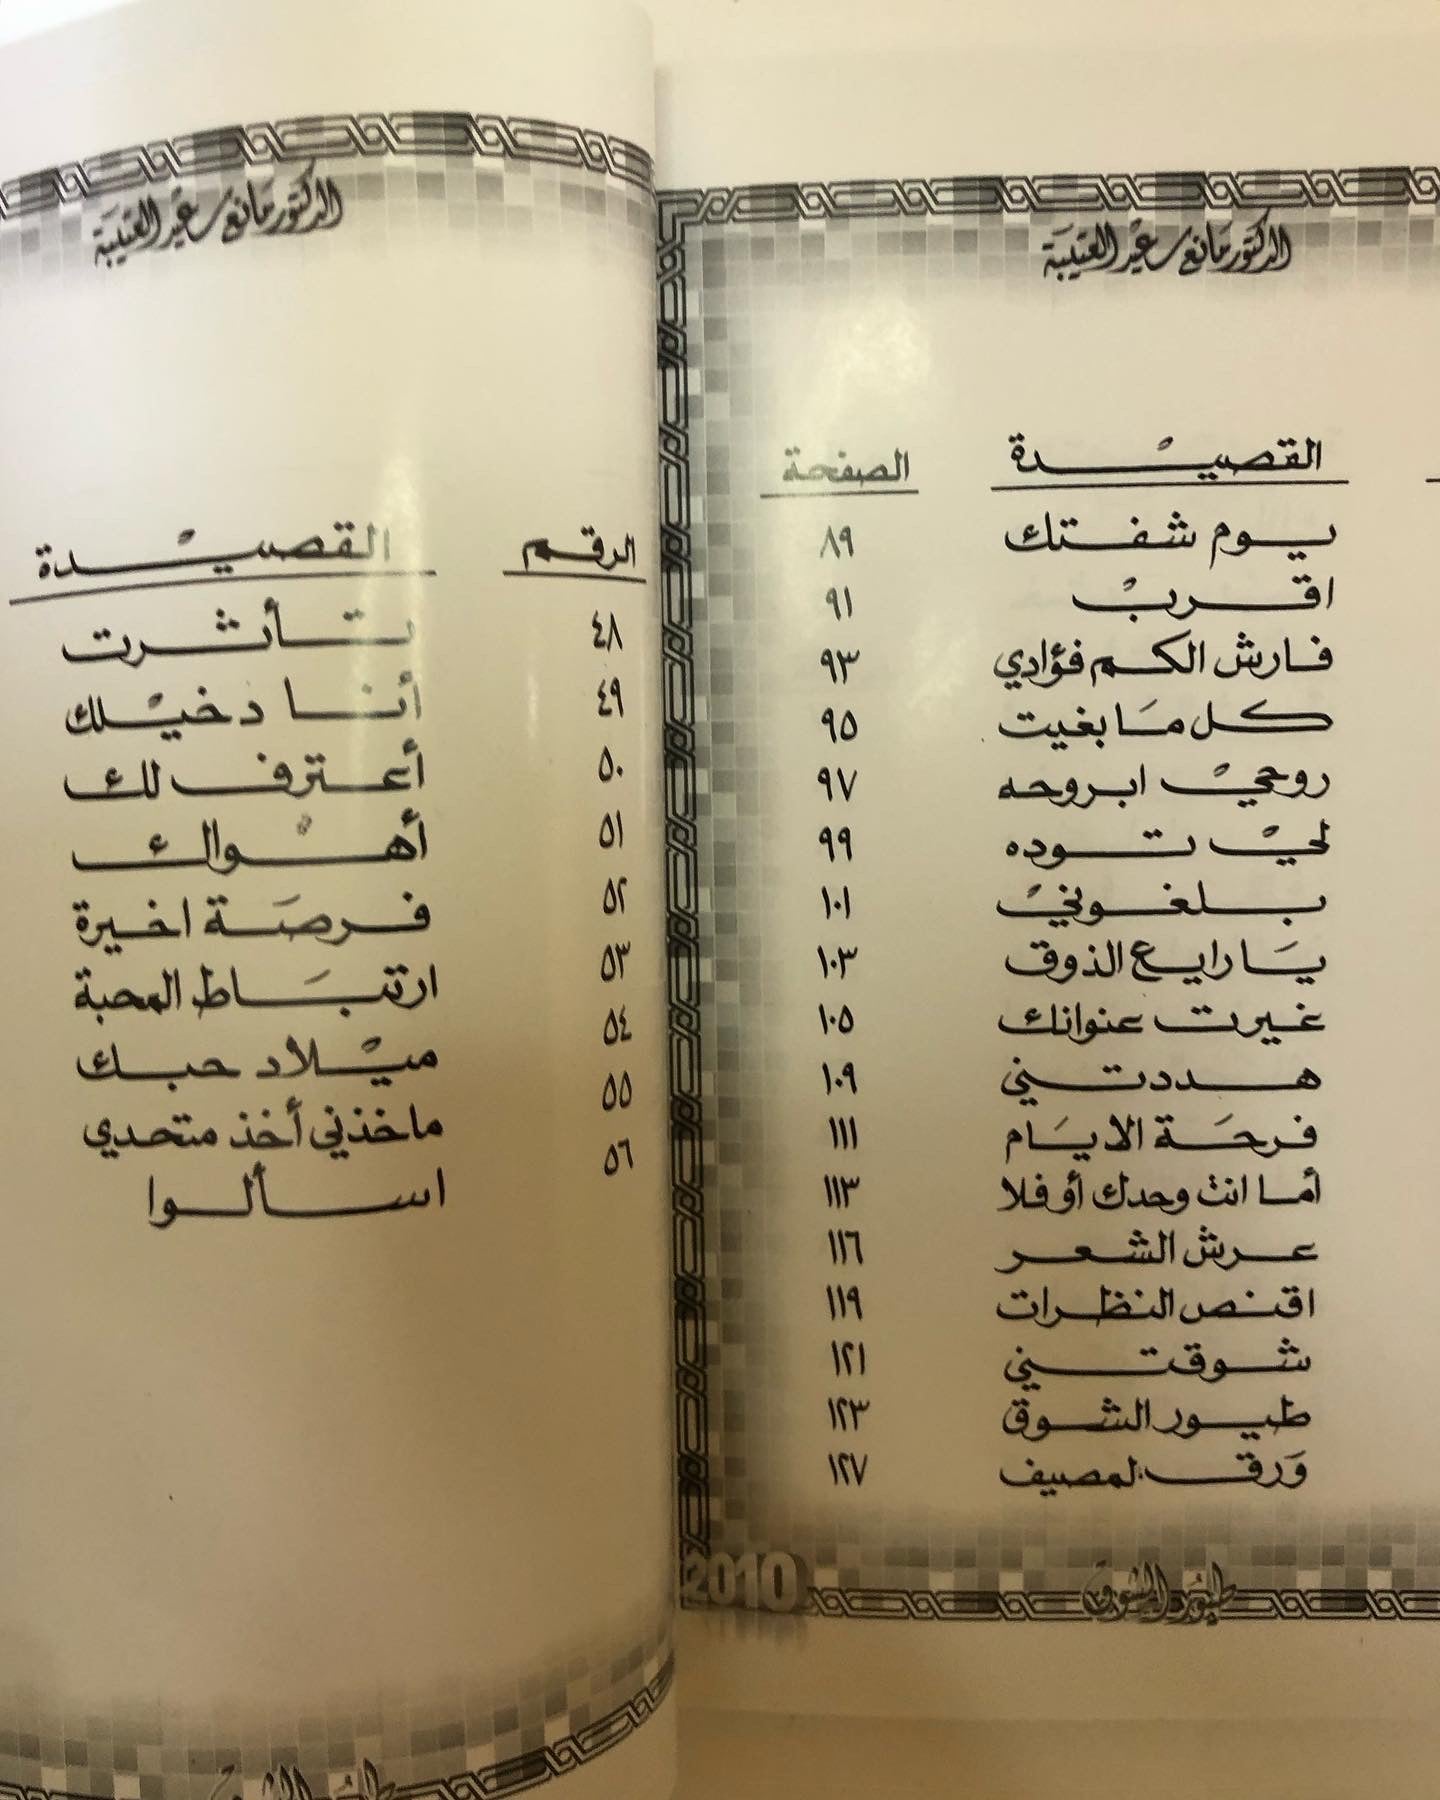 الدكتور مانع سعيد العتيبة
القصيدة الصفحة
يوم شفتك ٨٩
اقرب ٩١
فارش الكم فؤادي ٩٣
كل ما بغيت ٩٥
روحي ابروحه ٩٧
لي توده ٩٩
بلغوني ١٠١
يا رايع الذوق ١٠٣
غيرت عنوانك ١٠٥
هددتني ١٠٩
فرحة الايام ١١١
أما انت وحدك أو فلا ١١٣
عرش الشعر ١١٦
اقنص النظرات ١١٩
شوقتني ١٢١
طيور الشوق ١٢٣
ورق لمصيف ١٢٧
طيور الشوق
2010
الدكتور مانع سعيد العتيبة
الرقم القصيدة
٤٨ تأثرت
٤٩ أنا دخيلك
٥٠ أعترف لك
٥١ أهواك
٥٢ فرصة اخيرة
٥٣ ارتباط المحبة
٥٤ ميلاد حبك
٥٥ ماخذني أخذ متحدي
٥٦ اسألوا